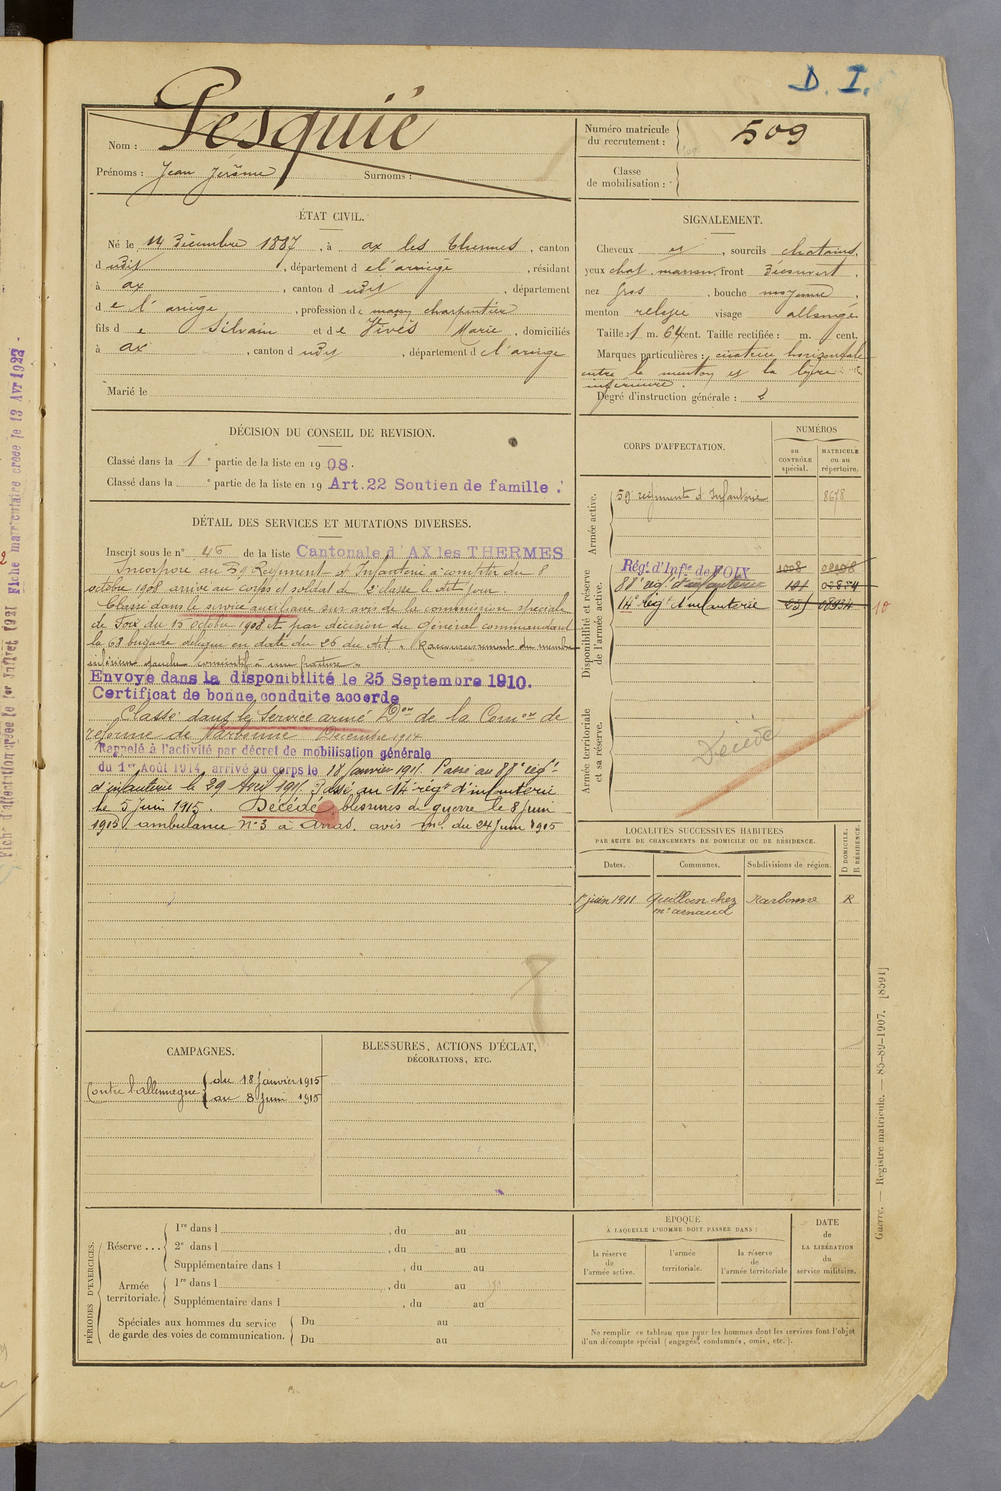 D. I.
Nom : Pesquié
Prénoms : Jean Jérôme Surnoms :
Numéro matricule du recrutement : 509
Classe de mobilisation :
ÉTAT CIVIL.
Né le 14 Décembre 1887, à ax les thermes, canton
d udit, département d e l'ariège, résidant
à ax, canton d udit, département
d e l'ariège, profession d e maçon charpentier
fils d e Silvain et d e Vivès Marie, domiciliés
à ax, canton d udit, département d e l'ariège
Marié le
SIGNALEMENT.
Cheveux et, sourcils chatains,
yeux chat. marron, front Découvert,
nez gros, bouche moyenne,
menton relevé visage allongé
Taille : 1 m. 64 cent. Taille rectifiée : m. cent.
Marques particulières : cicatrice horizontale
entre le menton et la lèvre
inférieure.
Degré d'instruction générale : 2
DÉCISION DU CONSEIL DE REVISION.
Classé dans la 1e partie de la liste en 1908.
Classé dans la e partie de la liste en 19 Art. 22 Soutien de famille.
DÉTAIL DES SERVICES ET MUTATIONS DIVERSES.
Inscrit sous le n° 46 de la liste Cantonale d'AX les THERMES
Incorporé au 59 Régiment d'Infanterie à compter du 8
octobre 1908 arrivé au corps et soldat de 2e classe le dit jour.
Classé dans le service auxiliaire sur avis de la commission spéciale
de Foix du 15 octobre 1908 et par décision du Général commandant
la 68 brigade délégué en date du 26 du dit. Raccourcissement du membre
inférieur gauche consécutif à une fracture.
Envoyé dans la disponibilité le 25 Septembre 1910.
Certificat de bonne conduite accordé
Classé dans le Service armé Don de la Comon de
réforme de Narbonne Décembre 1914
Rappelé à l'activité par décret de mobilisation générale
du 1er Août 1914, arrivé au corps le 18 Janvier 1915. Passé au 88e régt
d'infanterie le 29 Avril 1915. Passé au 14e régt d'infanterie
le 5 Juin 1915. Décédé, blessures de guerre le 8 Juin
1915 ambulance n° 3 à Arras. avis mel. du 24 Juin 1915
CORPS D'AFFECTATION.
NUMÉROS
au CONTRÔLE spécial.
MATRICULE ou au répertoire.
Armée active.
59e régiment d'Infanterie 8678
Disponibilité et réserve de l'armée active.
Rég. d'Infie de FOIX 1008
88e rég. d'infanterie
14e rég. d'infanterie
10
Armée territoriale et sa réserve.
Décédé
LOCALITÉS SUCCESSIVES HABITÉES
PAR SUITE DE CHANGEMENTS DE DOMICILE OU DE RÉSIDENCE.
Dates. Communes. Subdivisions de région. D DOMICILE. R RÉSIDENCE.
1er juin 1911 Quillan chez Narbonne R
Mr arnaud
CAMPAGNES.
Contre l'allemagne { du 18 Janvier 1915
au 8 Juin 1915
BLESSURES, ACTIONS D'ÉCLAT,
DÉCORATIONS, ETC.
PÉRIODES D'EXERCICES.
Réserve ...
1re dans l , du au
2e dans l , du au
Supplémentaire dans l , du au
Armée territoriale.
1re dans l , du au
Supplémentaire dans l , du au
Spéciales aux hommes du service
de garde des voies de communication.
Du au
Du au
ÉPOQUE
À LAQUELLE L'HOMME DOIT PASSER DANS :
la réserve de l'armée active.
l'armée territoriale.
la réserve de l'armée territoriale
DATE de LA LIBÉRATION du service militaire.
Ne remplir ce tableau que pour les hommes dont les services font l'objet
d'un décompte spécial (engagés, condamnés, omis, etc.).
Guerre. — Registre matricule. — 85-89-1907. [8591]
Fiche matriculaire créée le 13 Avr 1923
Fiche d'affectation créée le 1er Juillet 1921